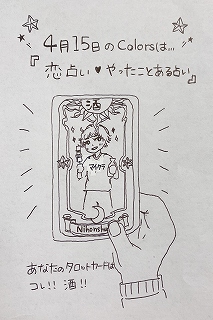 4月15日のColorsは...
『恋占い♥やったことある占い』
酒
マイカラ
Nihonshu
あなたのタロットカードは
コレ!! 酒!!